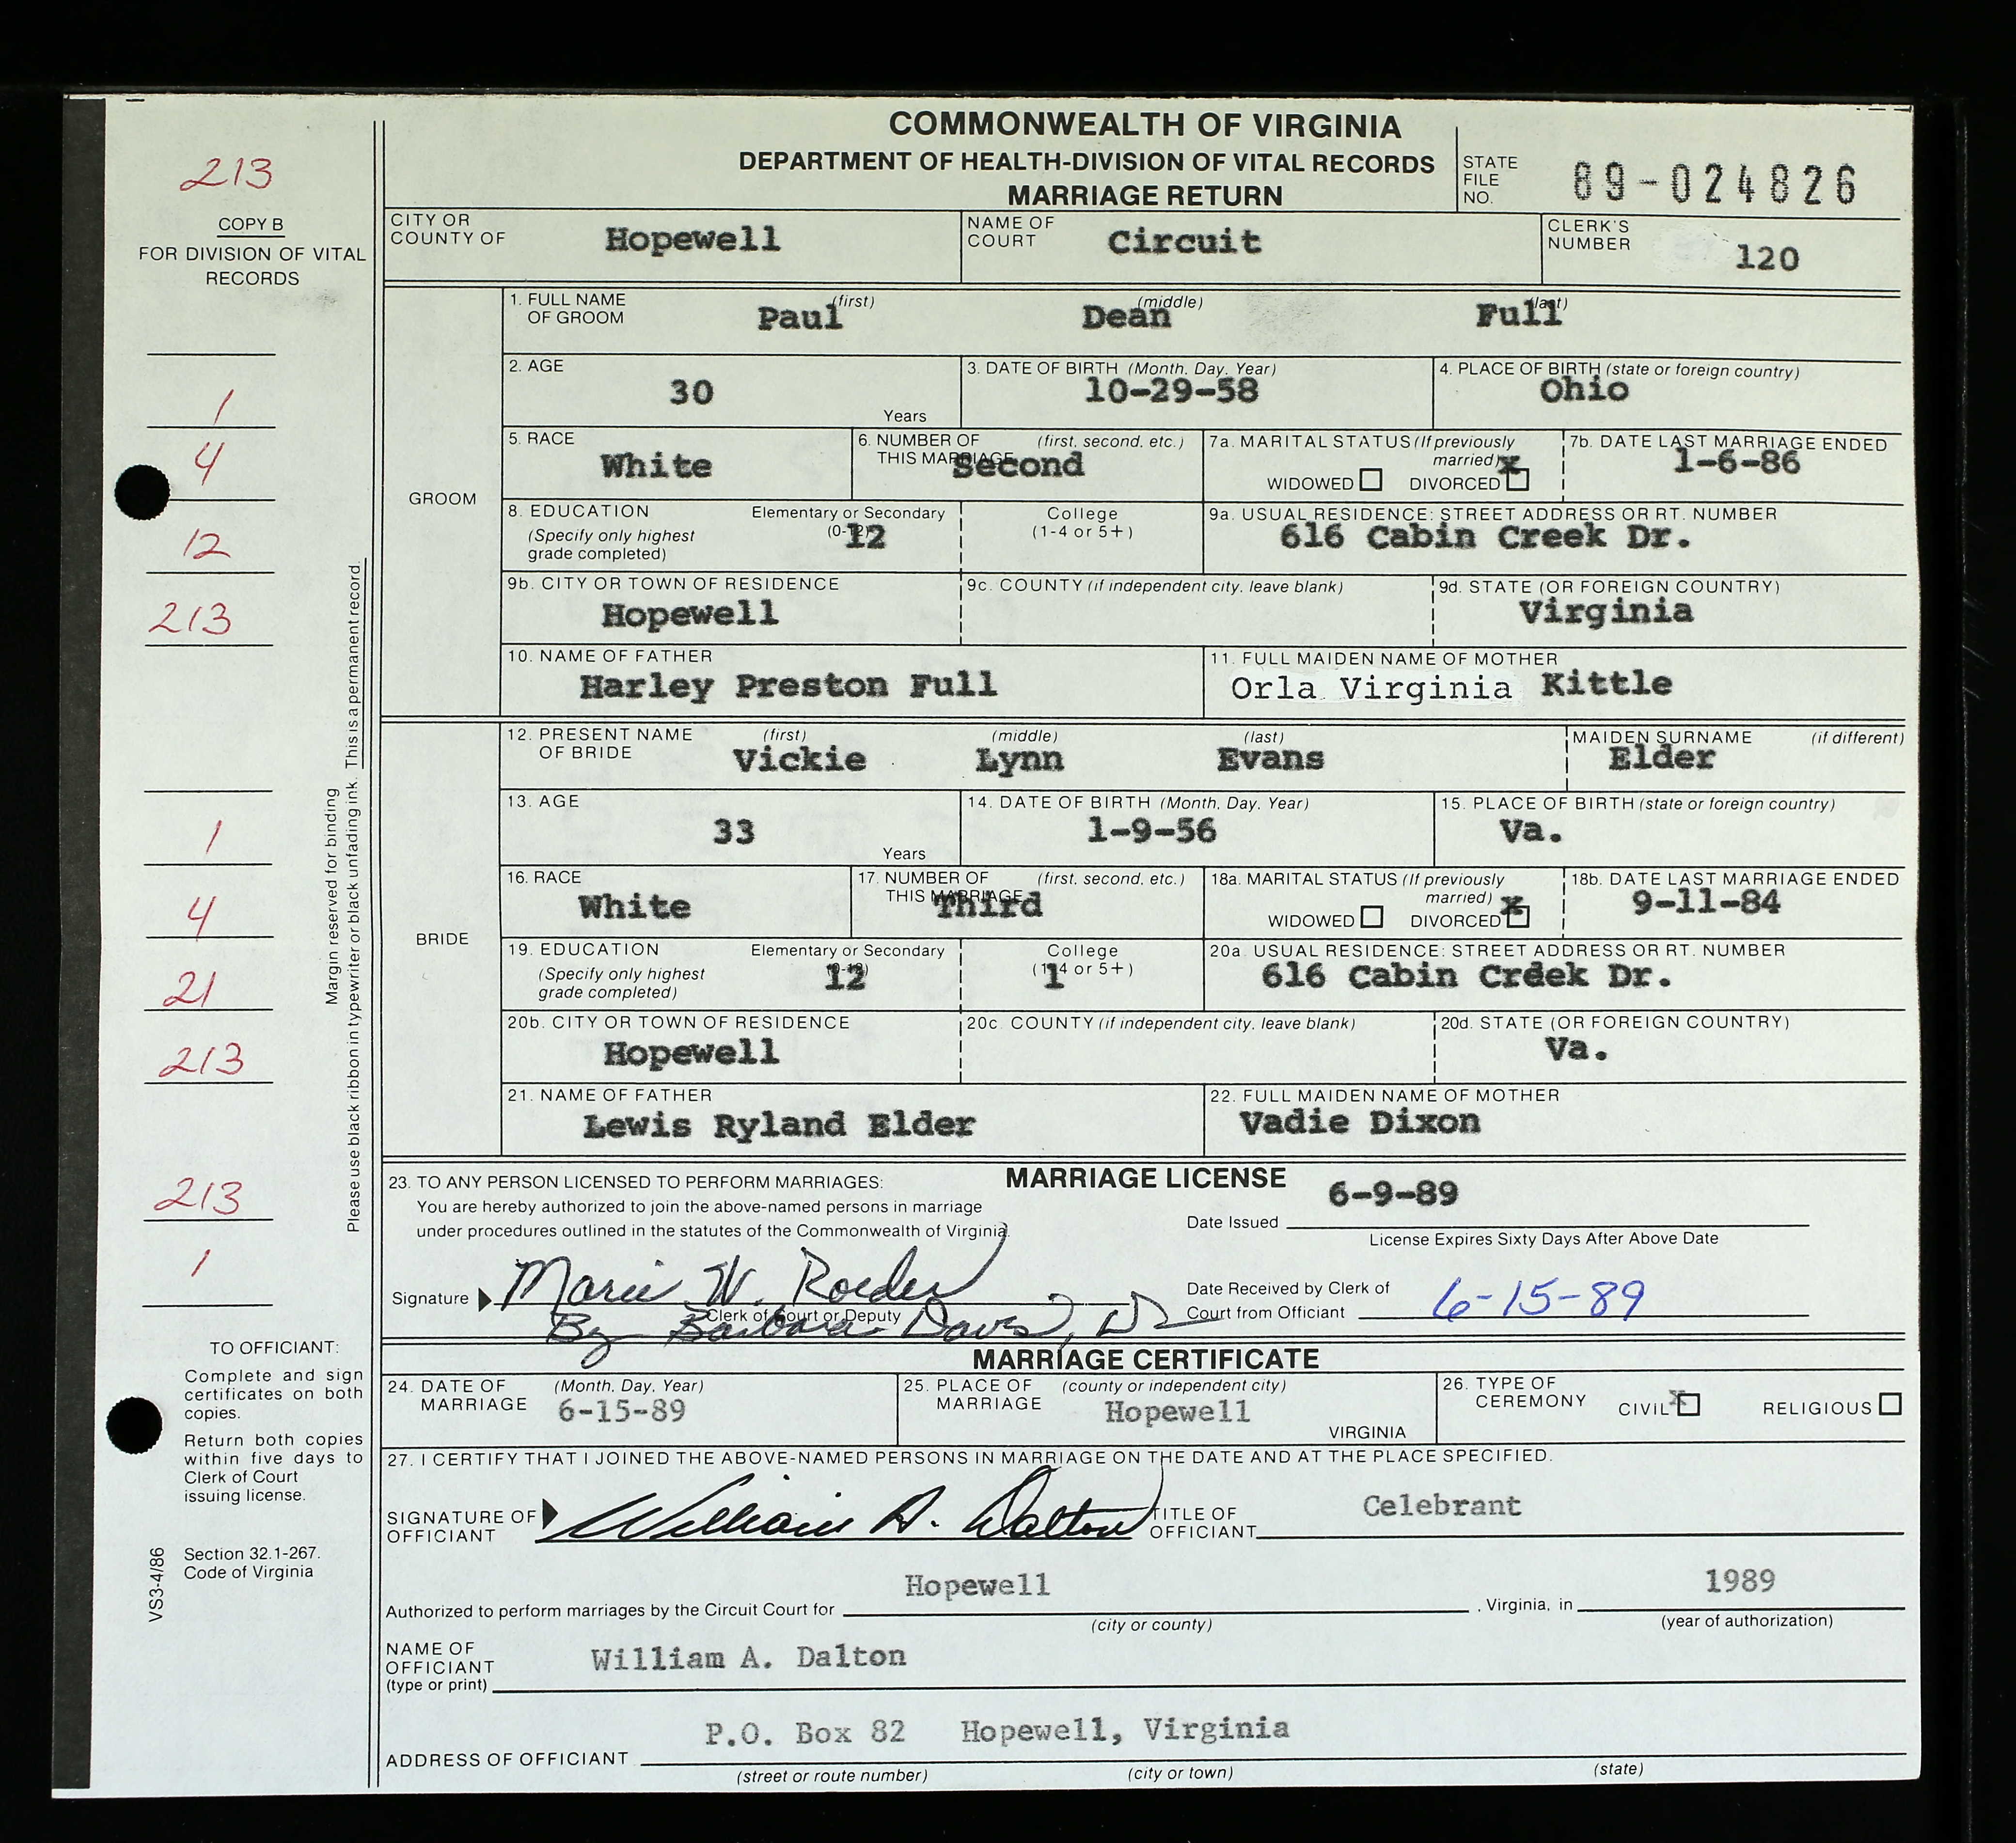 COMMONWEALTH OF VIRGINIA
DEPARTMENT OF HEALTH-DIVISION OF VITAL RECORDS
MARRIAGE RETURN
STATE FILE NO. 89-024826
213
COPY B
FOR DIVISION OF VITAL
RECORDS
CITY OR COUNTY OF Hopewell
NAME OF COURT Circuit
CLERK'S NUMBER 120
GROOM
1. FULL NAME OF GROOM (first) Paul (middle) Dean (last) Full
2. AGE 30 Years
3. DATE OF BIRTH (Month, Day, Year) 10-29-58
4. PLACE OF BIRTH (state or foreign country) Ohio
5. RACE White
6. NUMBER OF THIS MARRIAGE (first, second, etc.) Second
7a. MARITAL STATUS (If previously married) WIDOWED DIVORCED x
7b. DATE LAST MARRIAGE ENDED 1-6-86
8. EDUCATION (Specify only highest grade completed) Elementary or Secondary (0-12) 12
College (1-4 or 5+)
9a. USUAL RESIDENCE: STREET ADDRESS OR RT. NUMBER 616 Cabin Creek Dr.
9b. CITY OR TOWN OF RESIDENCE Hopewell
9c. COUNTY (if independent city, leave blank)
9d. STATE (OR FOREIGN COUNTRY) Virginia
10. NAME OF FATHER Harley Preston Full
11. FULL MAIDEN NAME OF MOTHER Orla Virginia Kittle
BRIDE
12. PRESENT NAME OF BRIDE (first) Vickie (middle) Lynn (last) Evans
MAIDEN SURNAME (if different) Elder
13. AGE 33 Years
14. DATE OF BIRTH (Month, Day, Year) 1-9-56
15. PLACE OF BIRTH (state or foreign country) Va.
16. RACE White
17. NUMBER OF THIS MARRIAGE (first, second, etc.) Third
18a. MARITAL STATUS (If previously married) WIDOWED DIVORCED x
18b. DATE LAST MARRIAGE ENDED 9-11-84
19. EDUCATION (Specify only highest grade completed) Elementary or Secondary (0-12) 12
College (1-4 or 5+) 1
20a. USUAL RESIDENCE: STREET ADDRESS OR RT. NUMBER 616 Cabin Creek Dr.
20b. CITY OR TOWN OF RESIDENCE Hopewell
20c. COUNTY (if independent city, leave blank)
20d. STATE (OR FOREIGN COUNTRY) Va.
21. NAME OF FATHER Lewis Ryland Elder
22. FULL MAIDEN NAME OF MOTHER Vadie Dixon
MARRIAGE LICENSE
23. TO ANY PERSON LICENSED TO PERFORM MARRIAGES:
You are hereby authorized to join the above-named persons in marriage
under procedures outlined in the statutes of the Commonwealth of Virginia.
Date Issued 6-9-89
License Expires Sixty Days After Above Date
Signature Marie W. Roeder
Clerk of Court or Deputy
By Barbara Davis,
Date Received by Clerk of Court from Officiant 6-15-89
MARRIAGE CERTIFICATE
24. DATE OF MARRIAGE (Month, Day, Year) 6-15-89
25. PLACE OF MARRIAGE (county or independent city) Hopewell VIRGINIA
26. TYPE OF CEREMONY CIVIL x RELIGIOUS
27. I CERTIFY THAT I JOINED THE ABOVE-NAMED PERSONS IN MARRIAGE ON THE DATE AND AT THE PLACE SPECIFIED.
SIGNATURE OF OFFICIANT William A. Dalton
TITLE OF OFFICIANT Celebrant
Authorized to perform marriages by the Circuit Court for Hopewell , Virginia, in 1989
(city or county) (year of authorization)
NAME OF OFFICIANT (type or print) William A. Dalton
ADDRESS OF OFFICIANT P.O. Box 82 Hopewell, Virginia
(street or route number) (city or town) (state)
1
4
12
213
1
4
21
213
213
1
Margin reserved for binding
Please use black ribbon in typewriter or black unfading ink. This is a permanent record.
TO OFFICIANT:
Complete and sign
certificates on both
copies.
Return both copies
within five days to
Clerk of Court
issuing license.
Section 32.1-267.
Code of Virginia
VS3-4/86